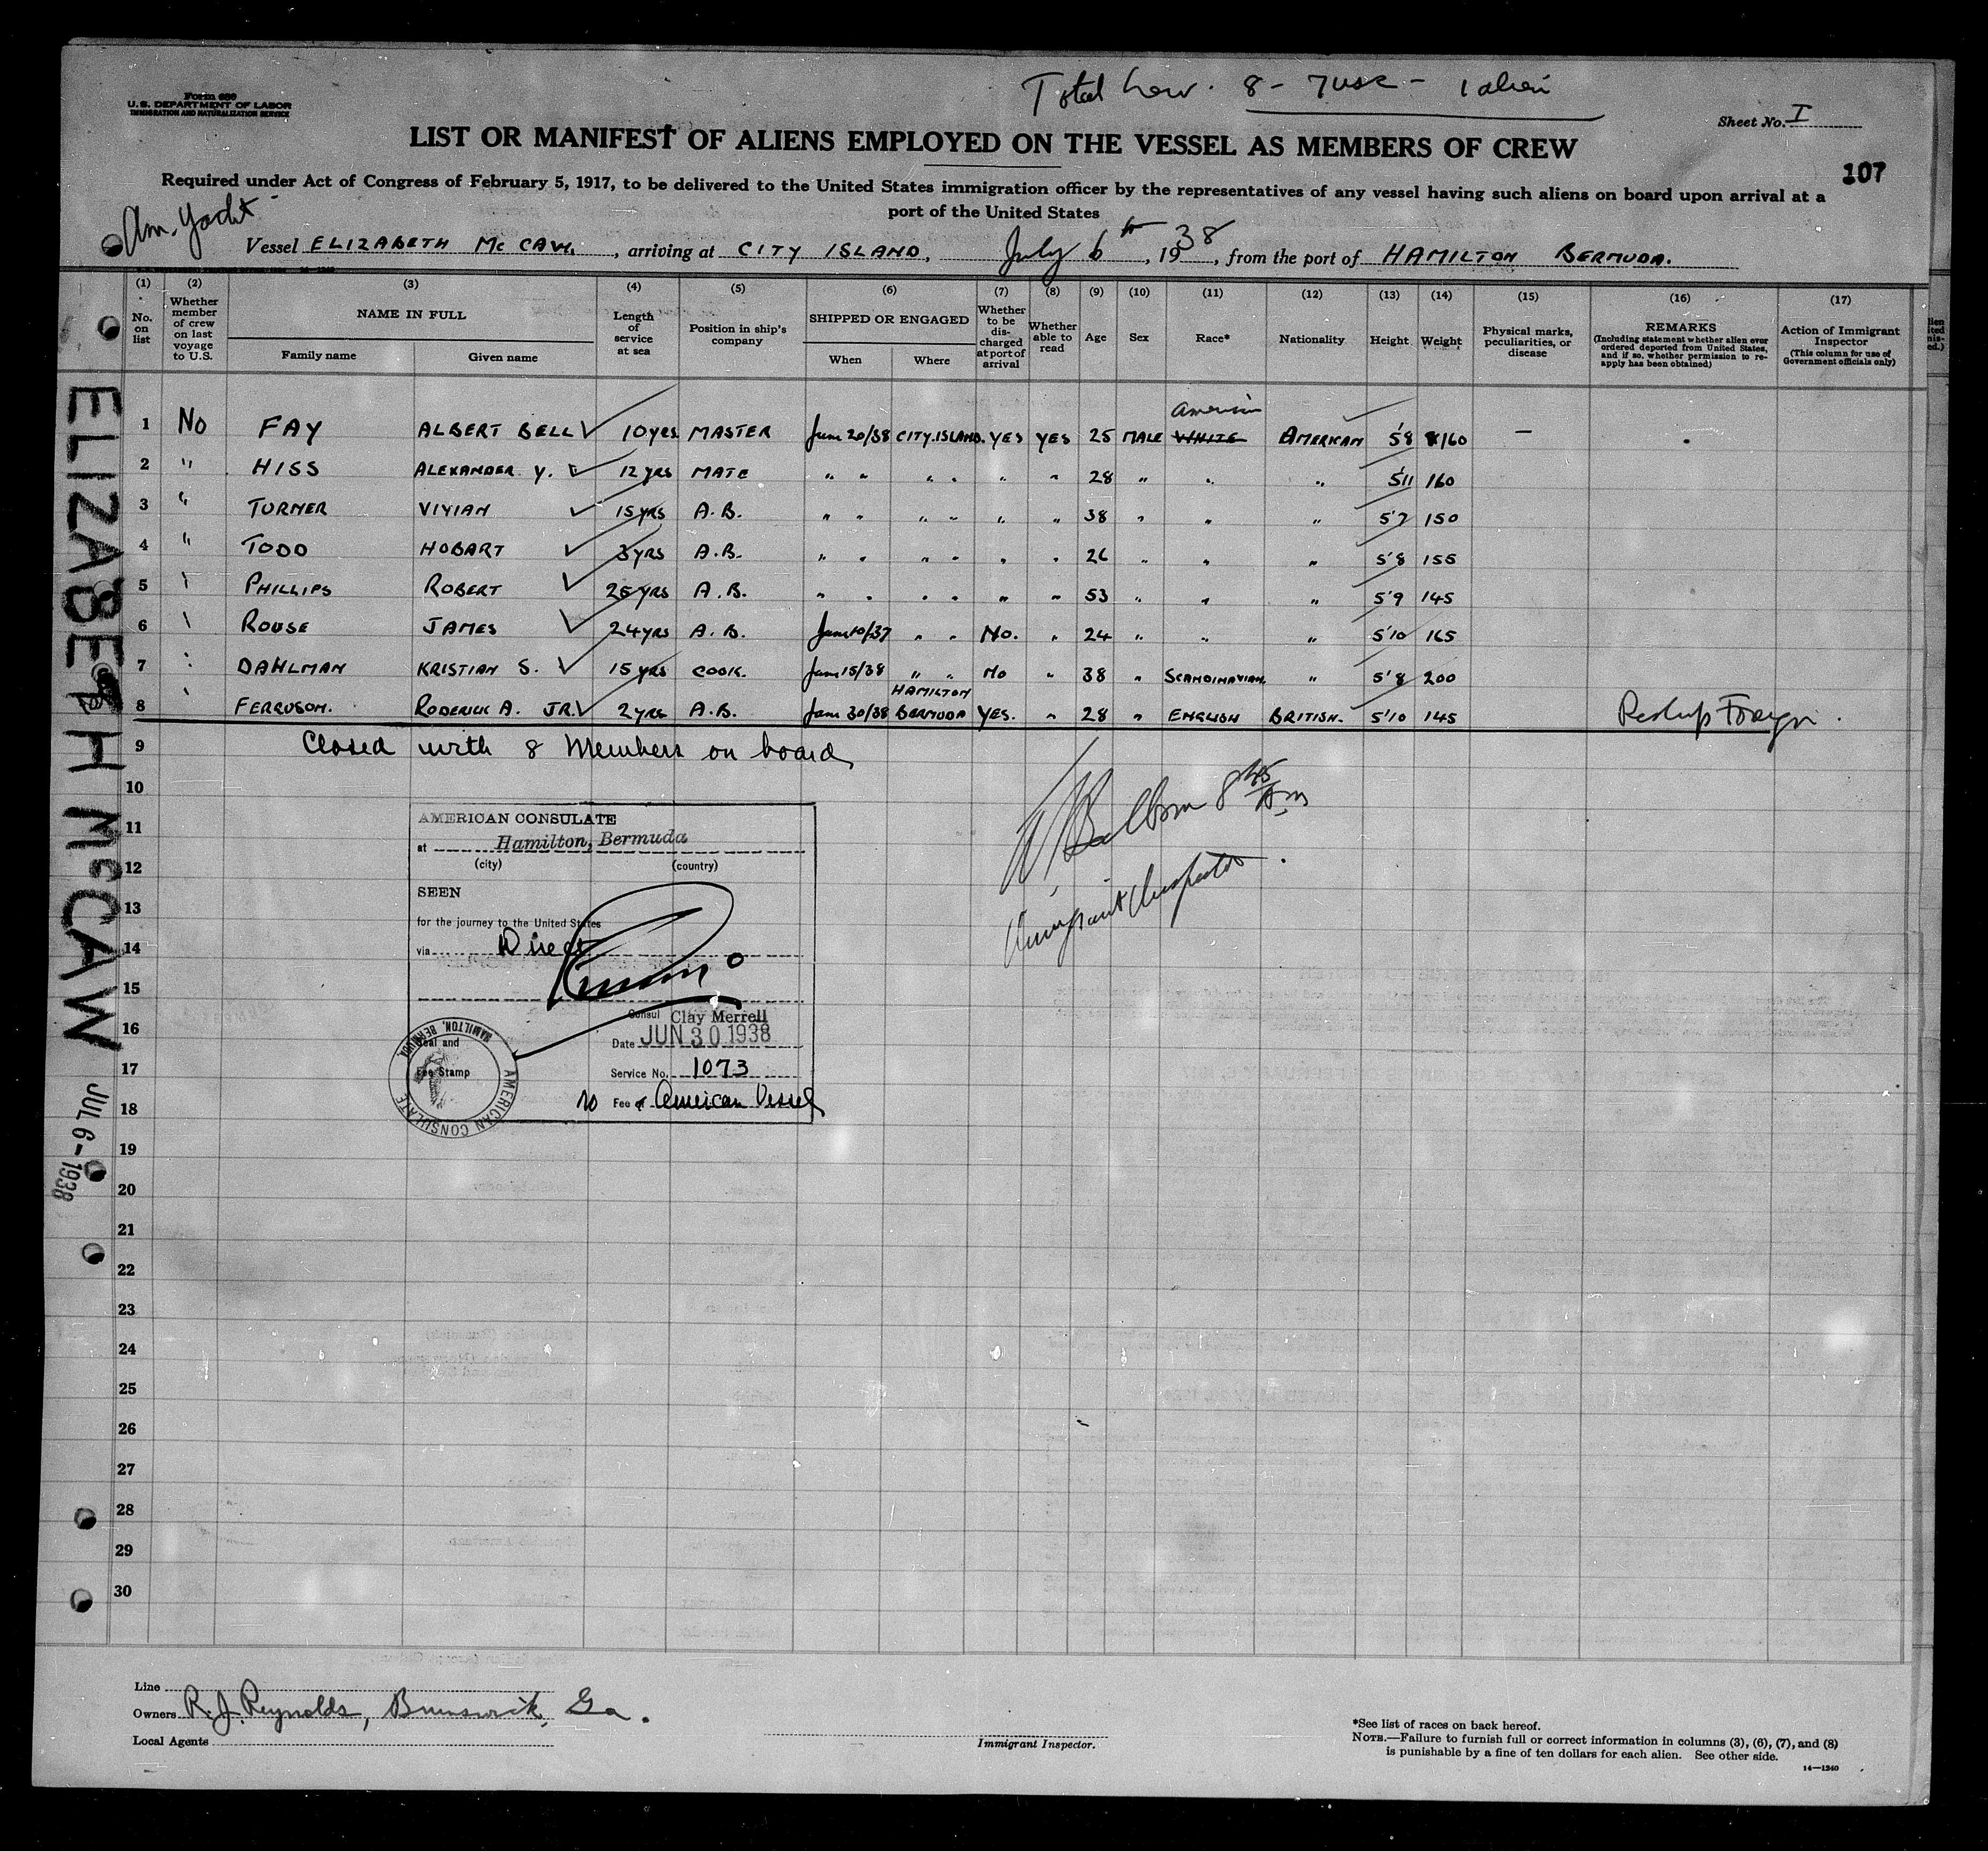 Form 680
U. S. DEPARTMENT OF LABOR
IMMIGRATION AND NATURALIZATION SERVICE
Total Crew. 8 - 7 USC - 1 alien
Sheet No. I
LIST OR MANIFEST OF ALIENS EMPLOYED ON THE VESSEL AS MEMBERS OF CREW
107
Required under Act of Congress of February 5, 1917, to be delivered to the United States immigration officer by the representatives of any vessel having such aliens on board upon arrival at a
port of the United States
Am. Yacht
Vessel ELIZABETH McCAW, arriving at CITY ISLAND, July 6th, 1938, from the port of HAMILTON BERMUDA.
(1) (2) (3) (4) (5) (6) (7) (8) (9) (10) (11) (12) (13) (14) (15) (16) (17)
No. on list
Whether member of crew on last voyage to U.S.
NAME IN FULL
Family name
Given name
Length of service at sea
Position in ship's company
SHIPPED OR ENGAGED
When
Where
Whether to be discharged at port of arrival
Whether able to read
Age
Sex
Race*
Nationality
Height
Weight
Physical marks, peculiarities, or disease
REMARKS
(Including statement whether alien ever ordered deported from United States, and if so, whether permission to re-apply has been obtained)
Action of Immigrant Inspector
(This column for use of Government officials only)
American
1 No FAY ALBERT BELL 10 yrs MASTER June 20/38 CITY ISLAND. YES YES 25 MALE WHITE AMERICAN 5'8 160 —
2 " HISS ALEXANDER Y. 12 yrs MATE " " " " " " 28 " " " 5'11 160
3 " TURNER VIVIAN 15 yrs A.B. " " " " " " 38 " " " 5'7 150
4 " TODD HOBART 3 yrs A.B. " " " " " " 26 " " " 5'8 155
5 " PHILLIPS ROBERT 25 yrs A.B. " " " " " " 53 " " " 5'9 145
6 " ROUSE JAMES 24 yrs A.B. June 10/37 " " No. " 24 " " " 5'10 165
7 " DAHLMAN KRISTIAN S. 15 yrs COOK. June 15/38 " " No " 38 " SCANDINAVIAN. " 5'8 200
8 " FERGUSON. RODERICK A. JR. 2 yrs A.B. June 30/38 HAMILTON BERMUDA YES. " 28 " ENGLISH BRITISH. 5'10 145 Reship Foreign.
9 Closed with 8 Members on board
10
11
12
13
14
15
16
17
18
19
20
21
22
23
24
25
26
27
28
29
30
8 45 Am
Immigrant Inspector.
AMERICAN CONSULATE
at Hamilton, Bermuda
(city) (country)
SEEN
for the journey to the United States
via Direct
Consul Clay Merrell
Date JUN 30 1938
Service No. 1073
no Fee American Vessel
Seal and
Fee Stamp
AMERICAN CONSULATE
HAMILTON, BERMUDA
ELIZABETH McCAW
JUL 6 - 1938
Line
Owners R. J. Reynolds, Brunswick, Ga.
Local Agents
Immigrant Inspector.
*See list of races on back hereof.
NOTE.—Failure to furnish full or correct information in columns (3), (6), (7), and (8)
is punishable by a fine of ten dollars for each alien. See other side.
14—1240